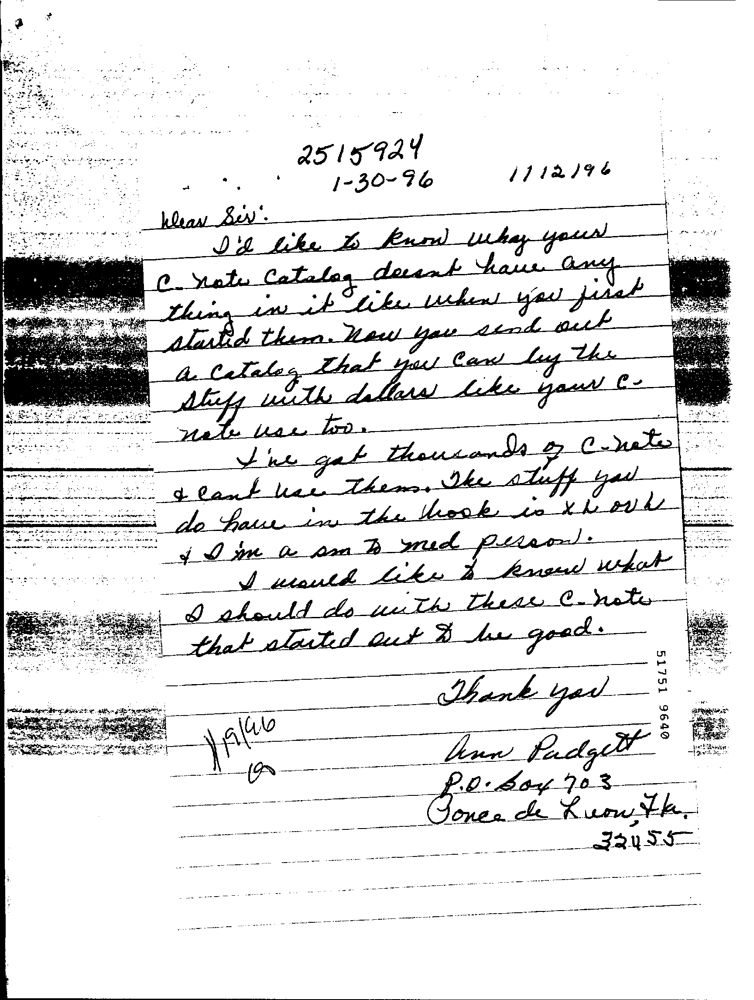 2515924
1-30-96 1112196
Dear Sir:
I'd like to know why your
C-note Catalog doesnt have any
thing in it like when you first
started them. Now you send out
a catalog that you can buy the
stuff with dollars like your C-
note use too.
I've got thousands of C-note
& cant use them. The stuff you
do have in the book is XL or L
& I'm a sm to med person.
I would like to know what
I should do with these C-note
that started out to be good.
Thank you
Ann Padgett
P.O. Box 703
Ponce de Leon, Fla.
32455
51751 9640